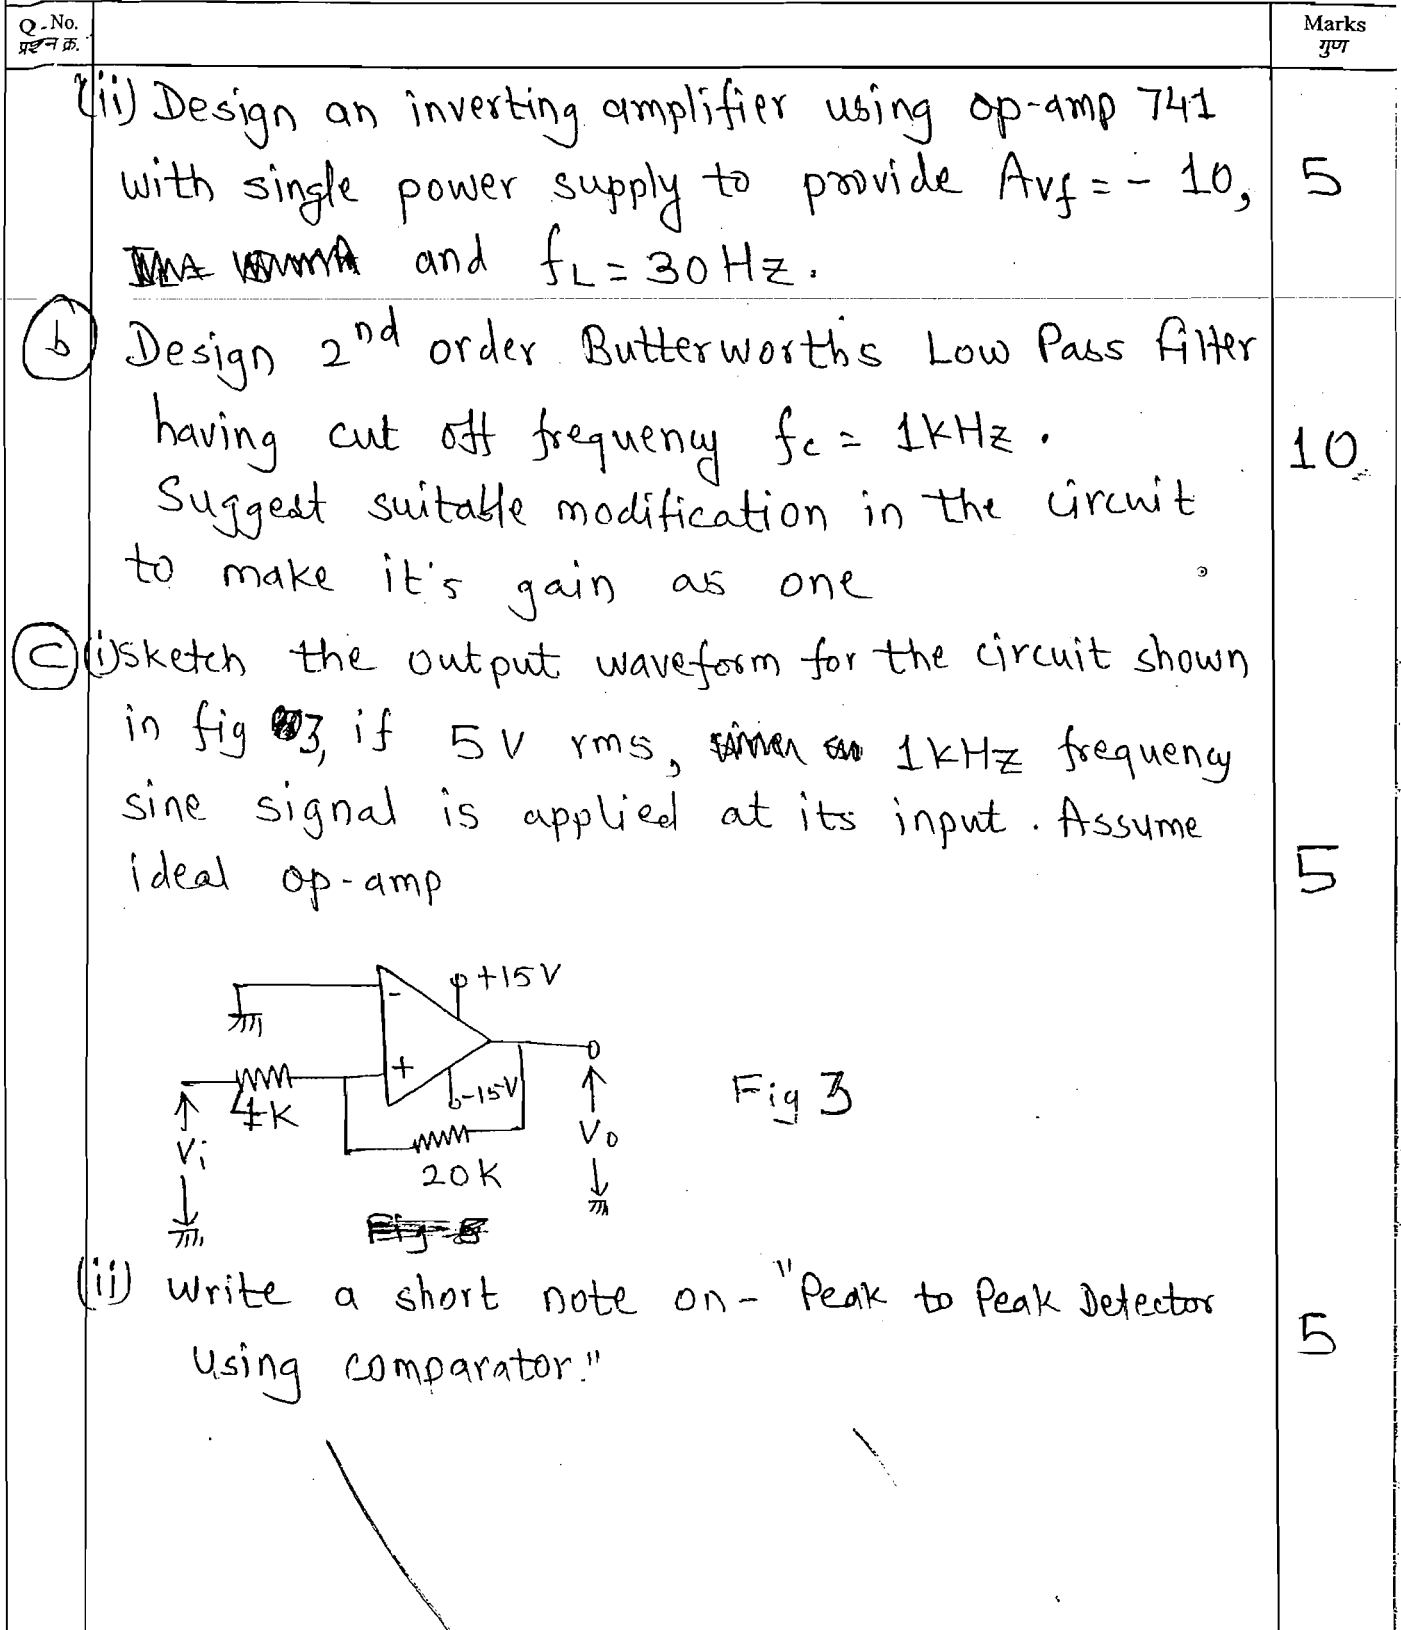 Q-No. Marks
प्रश्न क्र. गुण
(ii) Design an inverting amplifier using op-amp 741
with single power supply to provide Avf = - 10, 5
and fL = 30 Hz.
b Design 2nd order Butterworth's Low Pass filter
having cut off frequency fc = 1kHz. 10
Suggest suitable modification in the circuit
to make it's gain as one
C (i) sketch the output waveform for the circuit shown
in fig 3, if 5 V rms, 1kHz frequency
sine signal is applied at its input. Assume
ideal op-amp 5
+15 V
-
+
-15V
4K
Vi
20K
Vo
Fig 3
(ii) Write a short note on - "Peak to Peak Detector
using comparator." 5